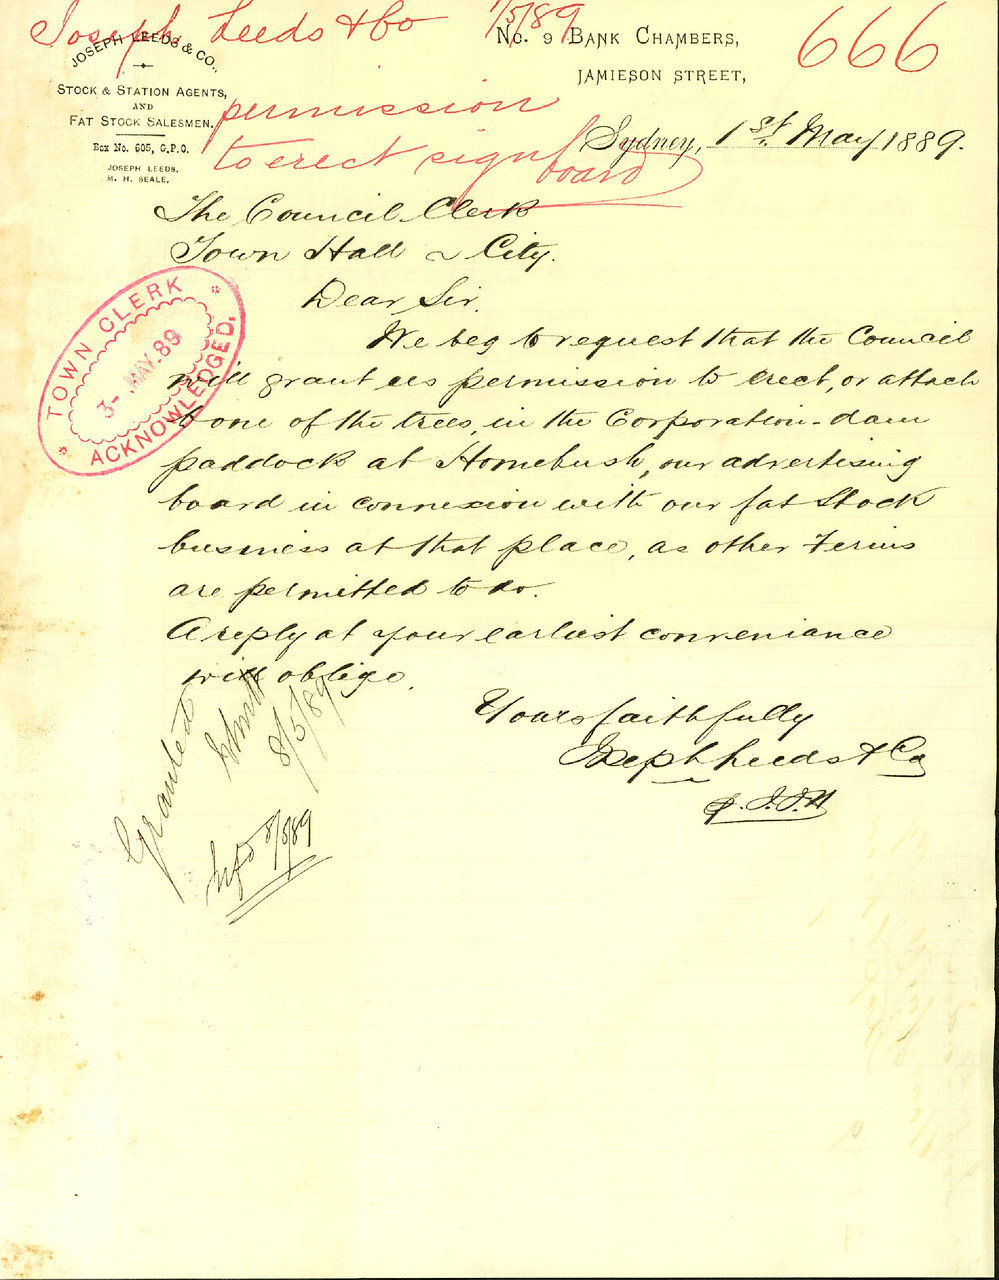 Joseph Leeds & Co 1/5/89
666
permission
to erect sign
board
JOSEPH LEEDS & CO.,
STOCK & STATION AGENTS,
AND
FAT STOCK SALESMEN.
Box No. 605, G.P.O.
JOSEPH LEEDS.
M. H. SEALE.
No. 9 BANK CHAMBERS,
JAMIESON STREET,
Sydney, 1st May 1889.
The Council Clerk
Town Hall ~ City.
Dear Sir,
We beg to request that the Council
will grant us permission to erect, or attach
to one of the trees, in the Corporation-dam
paddock at Homebush, our advertising
board in connexion with our fat Stock
business at that place, as other Firms
are permitted to do.
A reply at your earliest convenience
will oblige.
Yours faithfully
Joseph Leeds & Co
TOWN CLERK
3- MAY.89
ACKNOWLEDGED.
Granted
8/5/89
Infd 8/5/89